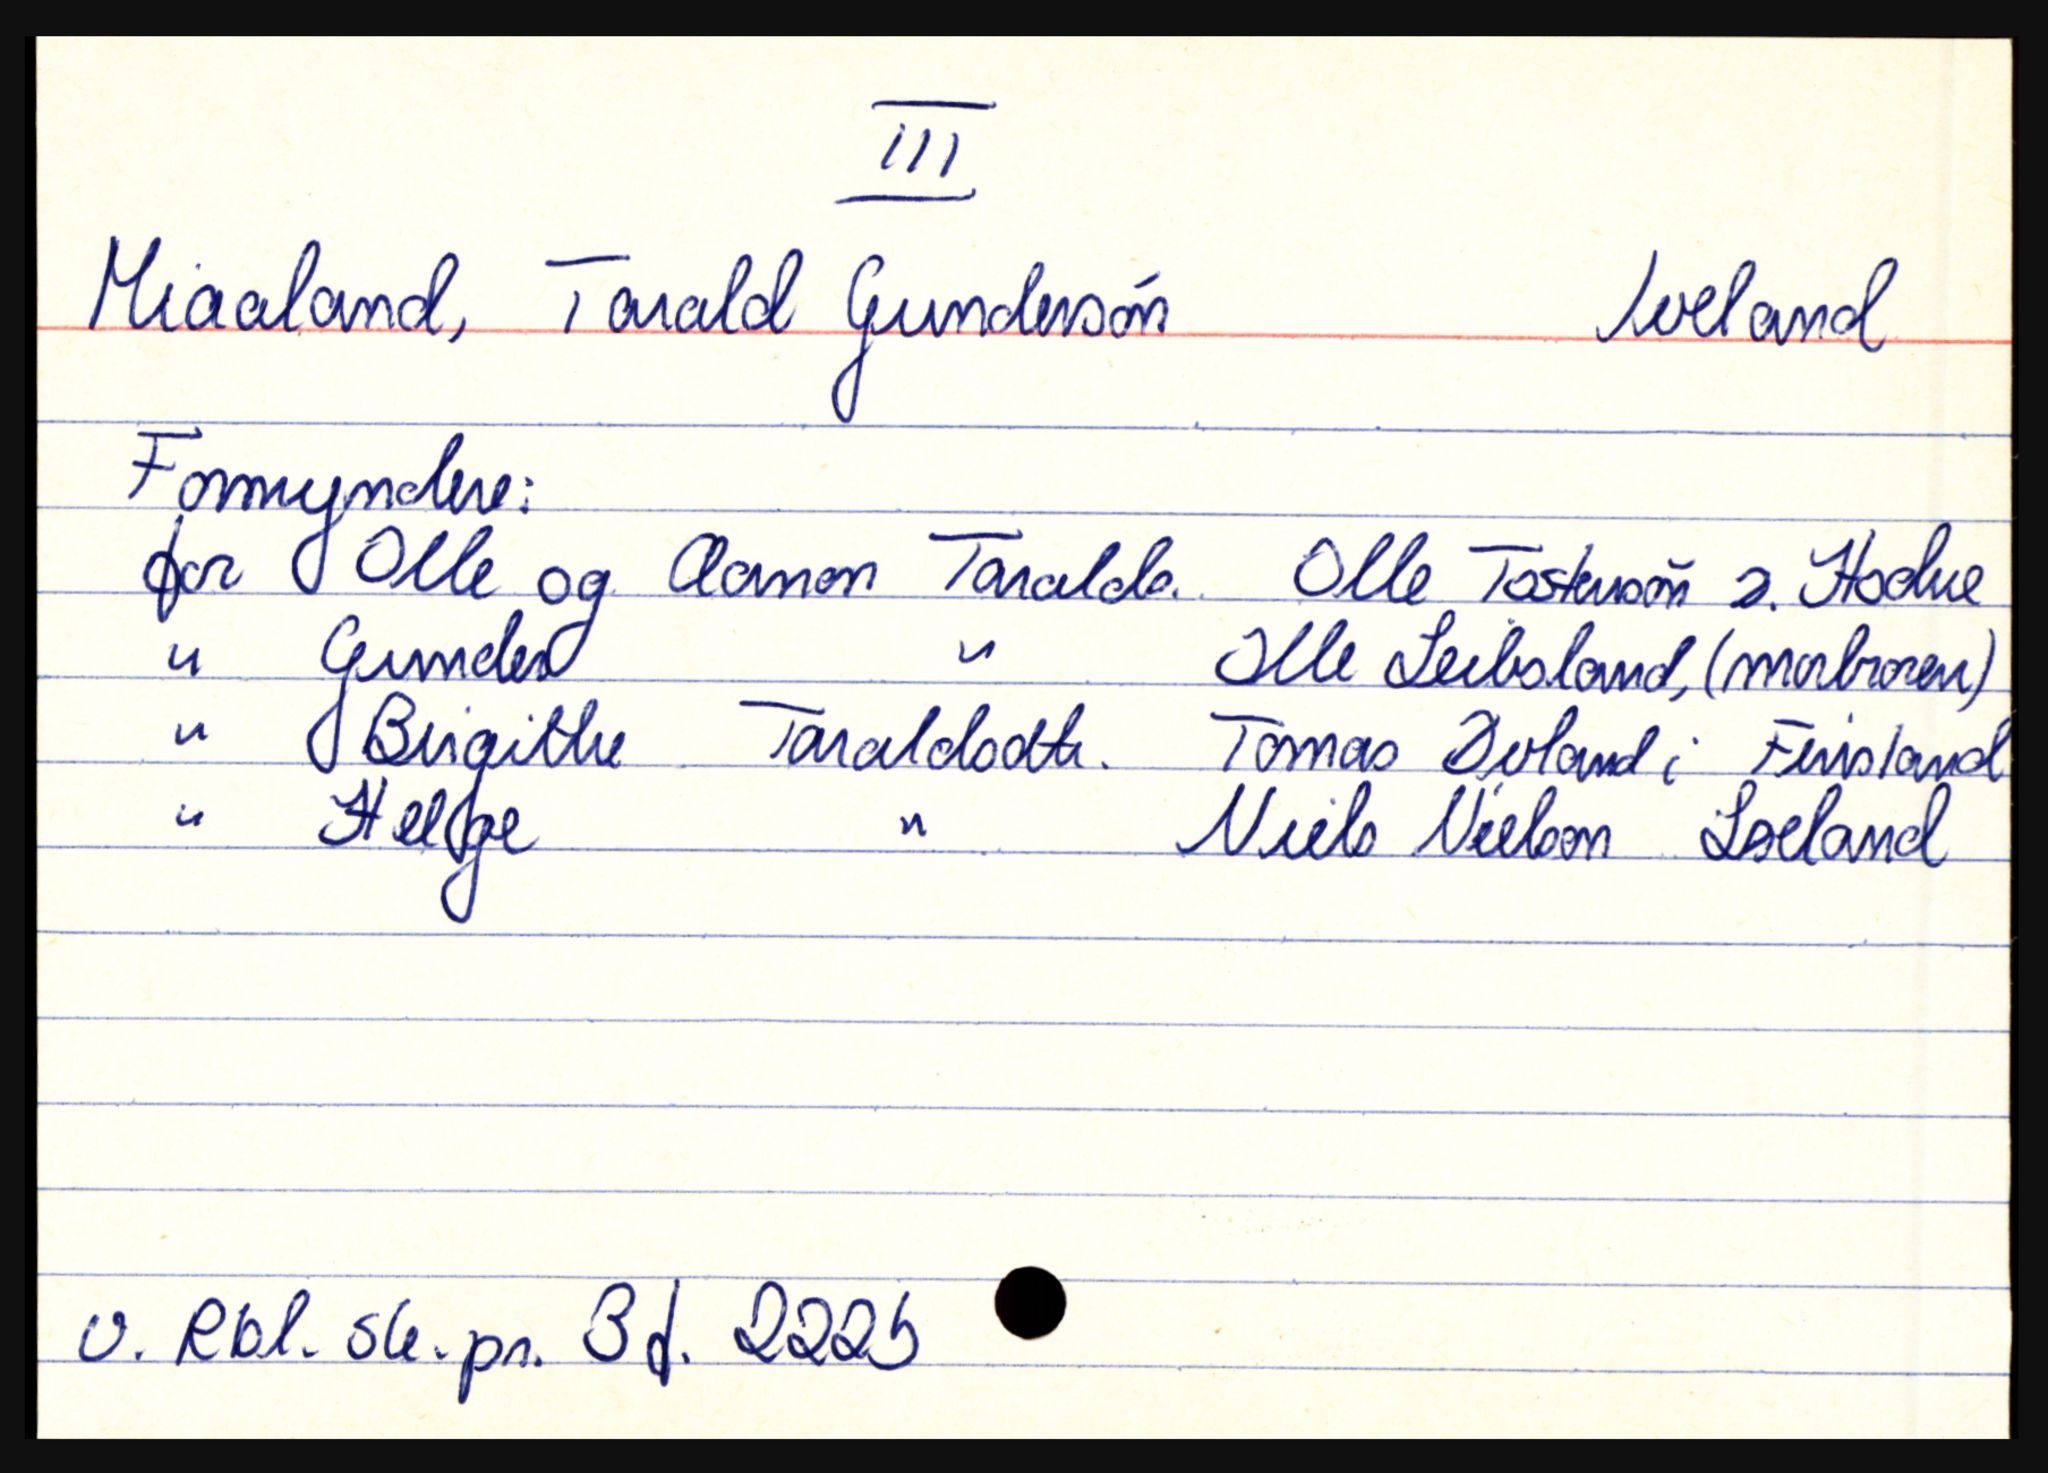 III
Miaaland, Tarald Gundersön Iveland
Formyndere:
for Olle og Aanon Taralds. Olle Tostersön s. Hodne
" Gunder " Olle Leibsland, (morbroren)
" Birgithe Taraldsdtr. Tomas Dvland i Finsland
" Helge " Niels Nielson Iveland
v. Rbl. sk.pr. 3 f. 222b